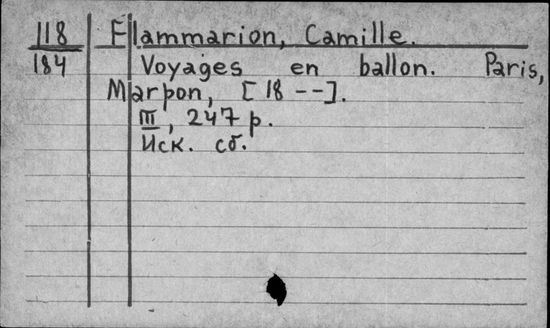 118 Flammarion, Camille.
184 Voyages en ballon. Paris,
Marpon, [18 --].
III, 247 p.
Иск. сб.